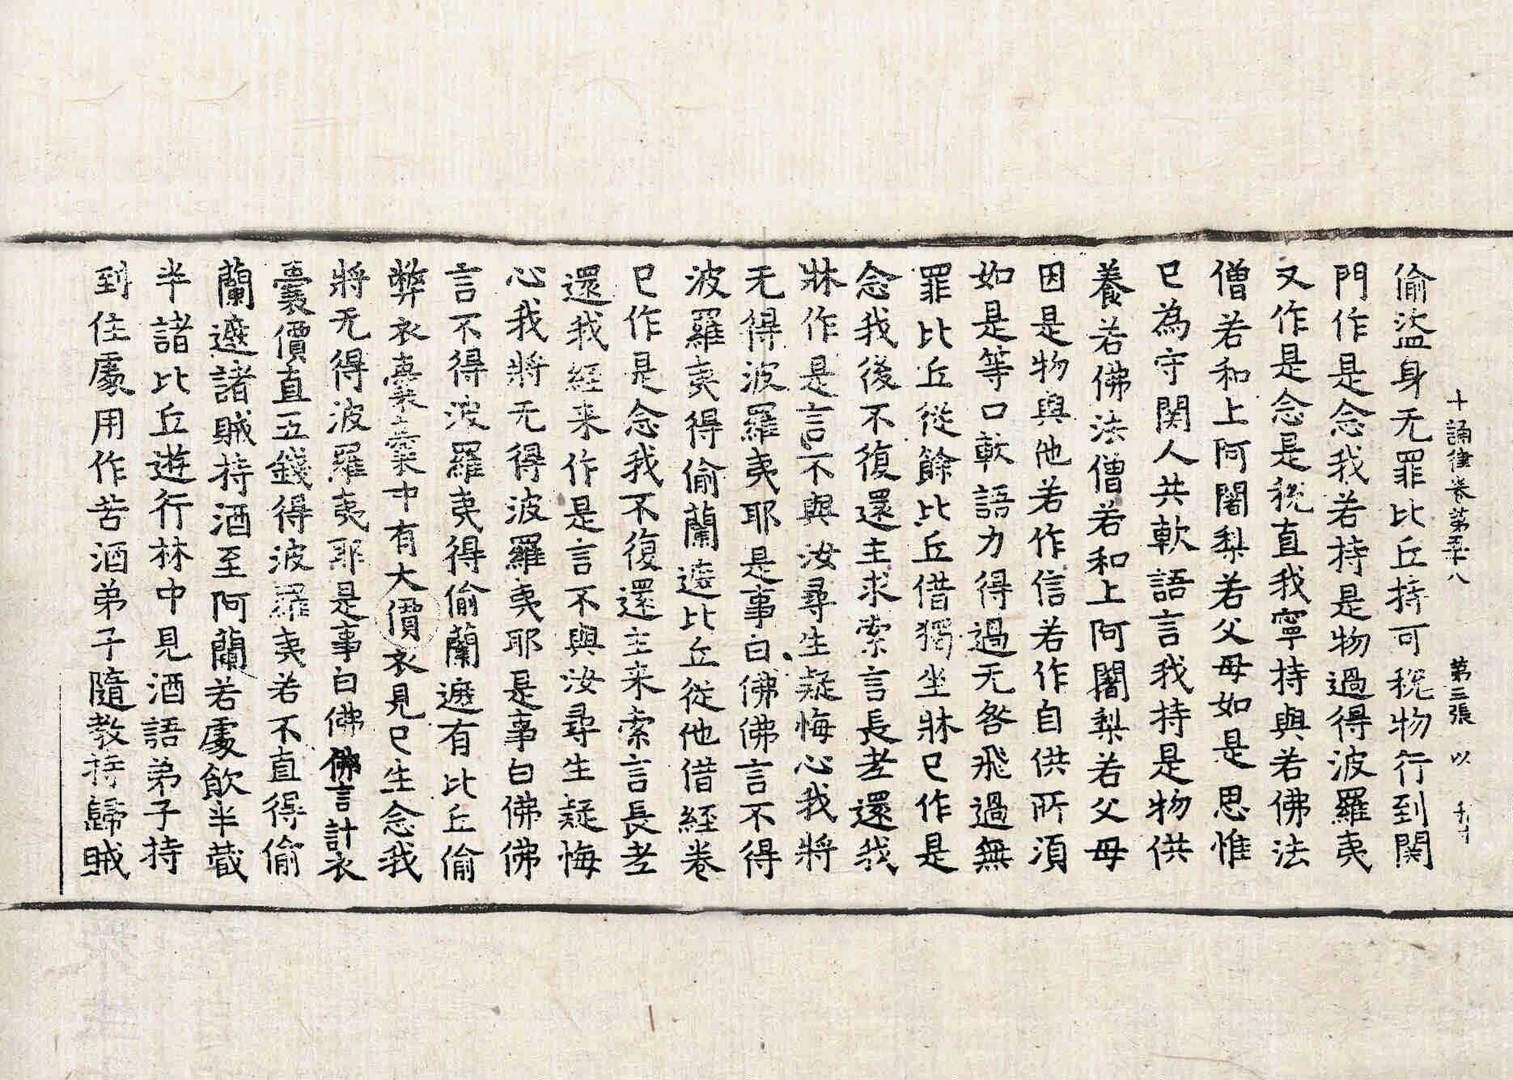 十誦律卷第五十八 第三張 以
偷盗身无罪比丘持可税物行到関
門作是念我若持是物過得波羅夷
又作是念是税直我寧持與若佛法
僧若和上阿闍梨若父母如是思惟
已為守関人共軟語言我持是物供
養若佛法僧若和上阿闍梨若父母
因是物與他若作信若作自供所湏
如是等口軟語力得過无咎飛過無
罪比丘從餘比丘借獨坐牀已作是
念我後不復還主求索言長老還我
牀作是言不與汝尋生疑悔心我將
无得波羅夷耶是事白佛佛言不得
波羅夷得偷蘭遮比丘從他借経卷
已作是念我不復還主来索言長老
還我経来作是言不與汝尋生疑悔
心我將无得波羅夷耶是事白佛佛
言不得波羅夷得偷蘭遮有比丘偷
弊衣囊囊中有大價衣見已生念我
將无得波羅夷耶是事白佛佛言計衣
囊價直五錢得波羅夷若不直得偷
蘭遮諸賊持酒至阿蘭若處飲半蔵
半諸比丘遊行林中見酒語弟子持
到住處用作苦酒弟子隨教持歸賊